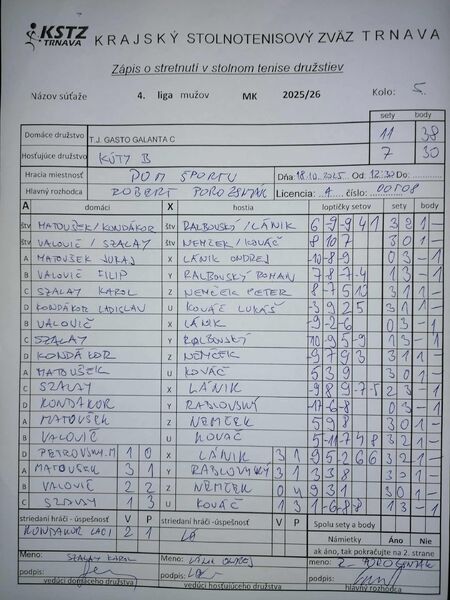 KSTZ
TRNAVA
KRAJSKÝ STOLNOTENISOVÝ ZVÄZ TRNAVA
Zápis o stretnutí v stolnom tenise družstiev
Názov súťaže 4. liga mužov MK 2025/26 Kolo: 5.
sety body
Domáce družstvo T.J. GASTO GALANTA C 11 38
Hosťujúce družstvo KÚTY B 7 30
Hracia miestnosť DOM ŠPORTU Dňa: 18.10.2025 Od: 12:30 Do:
Hlavný rozhodca ROBERT Licencia: A číslo:
A domáci X hostia loptičky setov sety body
štv MATOUŠEK/KONDÁKOR štv RALBOVSKÝ/LÁNIK 6 -9 -9 4 1 3 2 1 -
štv VALOVIČ/SZALAY štv NEMČEK/KOVÁČ 8 10 7 3 0 1 -
A MATOUŠEK JURAJ X LÁNIK ONDREJ -10 -8 -9 0 3 - 1
B VALOVIČ FILIP Y RALBOVSKÝ ROMAN 7 -8 -7 -4 1 3 - 1
C SZALAY KAROL Z NEMČEK PETER 8 -7 5 13 3 1 1 -
D KONDÁKOR LADISLAV U KOVÁČ LUKÁŠ -3 9 2 5 3 1 1 -
B VALOVIČ X LÁNIK -9 -2 -6 0 3 - 1
C SZALAY Y RALBOVSKÝ 10 -9 5 -9 1 3 - 1
D KONDÁKOR Z NEMČEK -9 7 9 3 3 1 1 -
A MATOUŠEK U KOVÁČ 5 3 9 3 0 1 -
C SZALAY X LÁNIK -9 8 9 -7 -5 2 3 - 1
D KONDÁKOR Y -17 -6 -8 0 3 - 1
A MATOUŠEK Z NEMČEK 5 9 8 3 0 1 -
B VALOVIČ U KOVAČ 5 -11 -7 4 8 3 2 1 -
D 1 0 X LÁNIK 3 1 9 5 -2 6 6 3 2 1 -
A MATOUŠEK 3 1 Y 3 1 3 0 1 -
B VALOVIČ 2 2 Z NEMČEK 0 4 9 3 1 3 0 1 -
C SZALAY 1 3 U KOVÁČ 1 3 1 -6 -8 -8 1 3 - 1
striedaní hráči - úspešnosť V P striedaní hráči - úspešnosť V P Spolu sety a body
KONDÁKOR LACI 2 1 Námietky Áno Nie
ak áno, tak pokračujte na 2. strane
Meno: SZALAY KAROL Meno: meno:
podpis: podpis: podpis:
vedúci domáceho družstva vedúci hosťujúceho družstva hlavný rozhodca